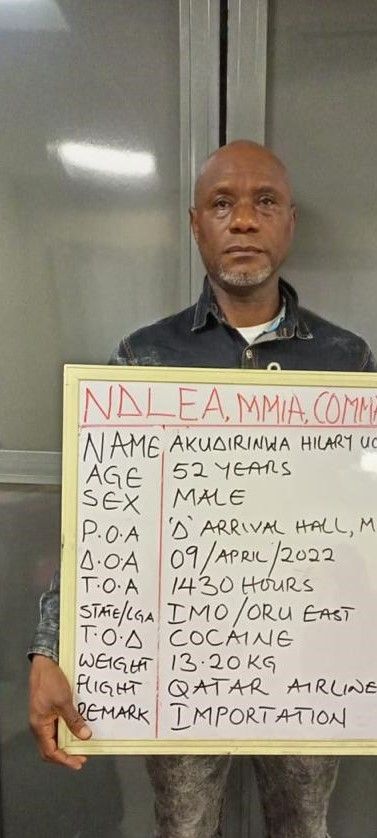 NDLEA, MMIA, COMMA
NAME AKUDIRINWA HILARY UC
AGE 52 YEARS
SEX MALE
P.O.A 'D' ARRIVAL HALL, M
D.O.A 09/APRIL/2022
T.O.A 1430 HOURS
STATE/LGA IMO/ORU EAST
T.O.D COCAINE
WEIGHT 13.20KG
FLIGHT QATAR AIRLINE
REMARK IMPORTATION